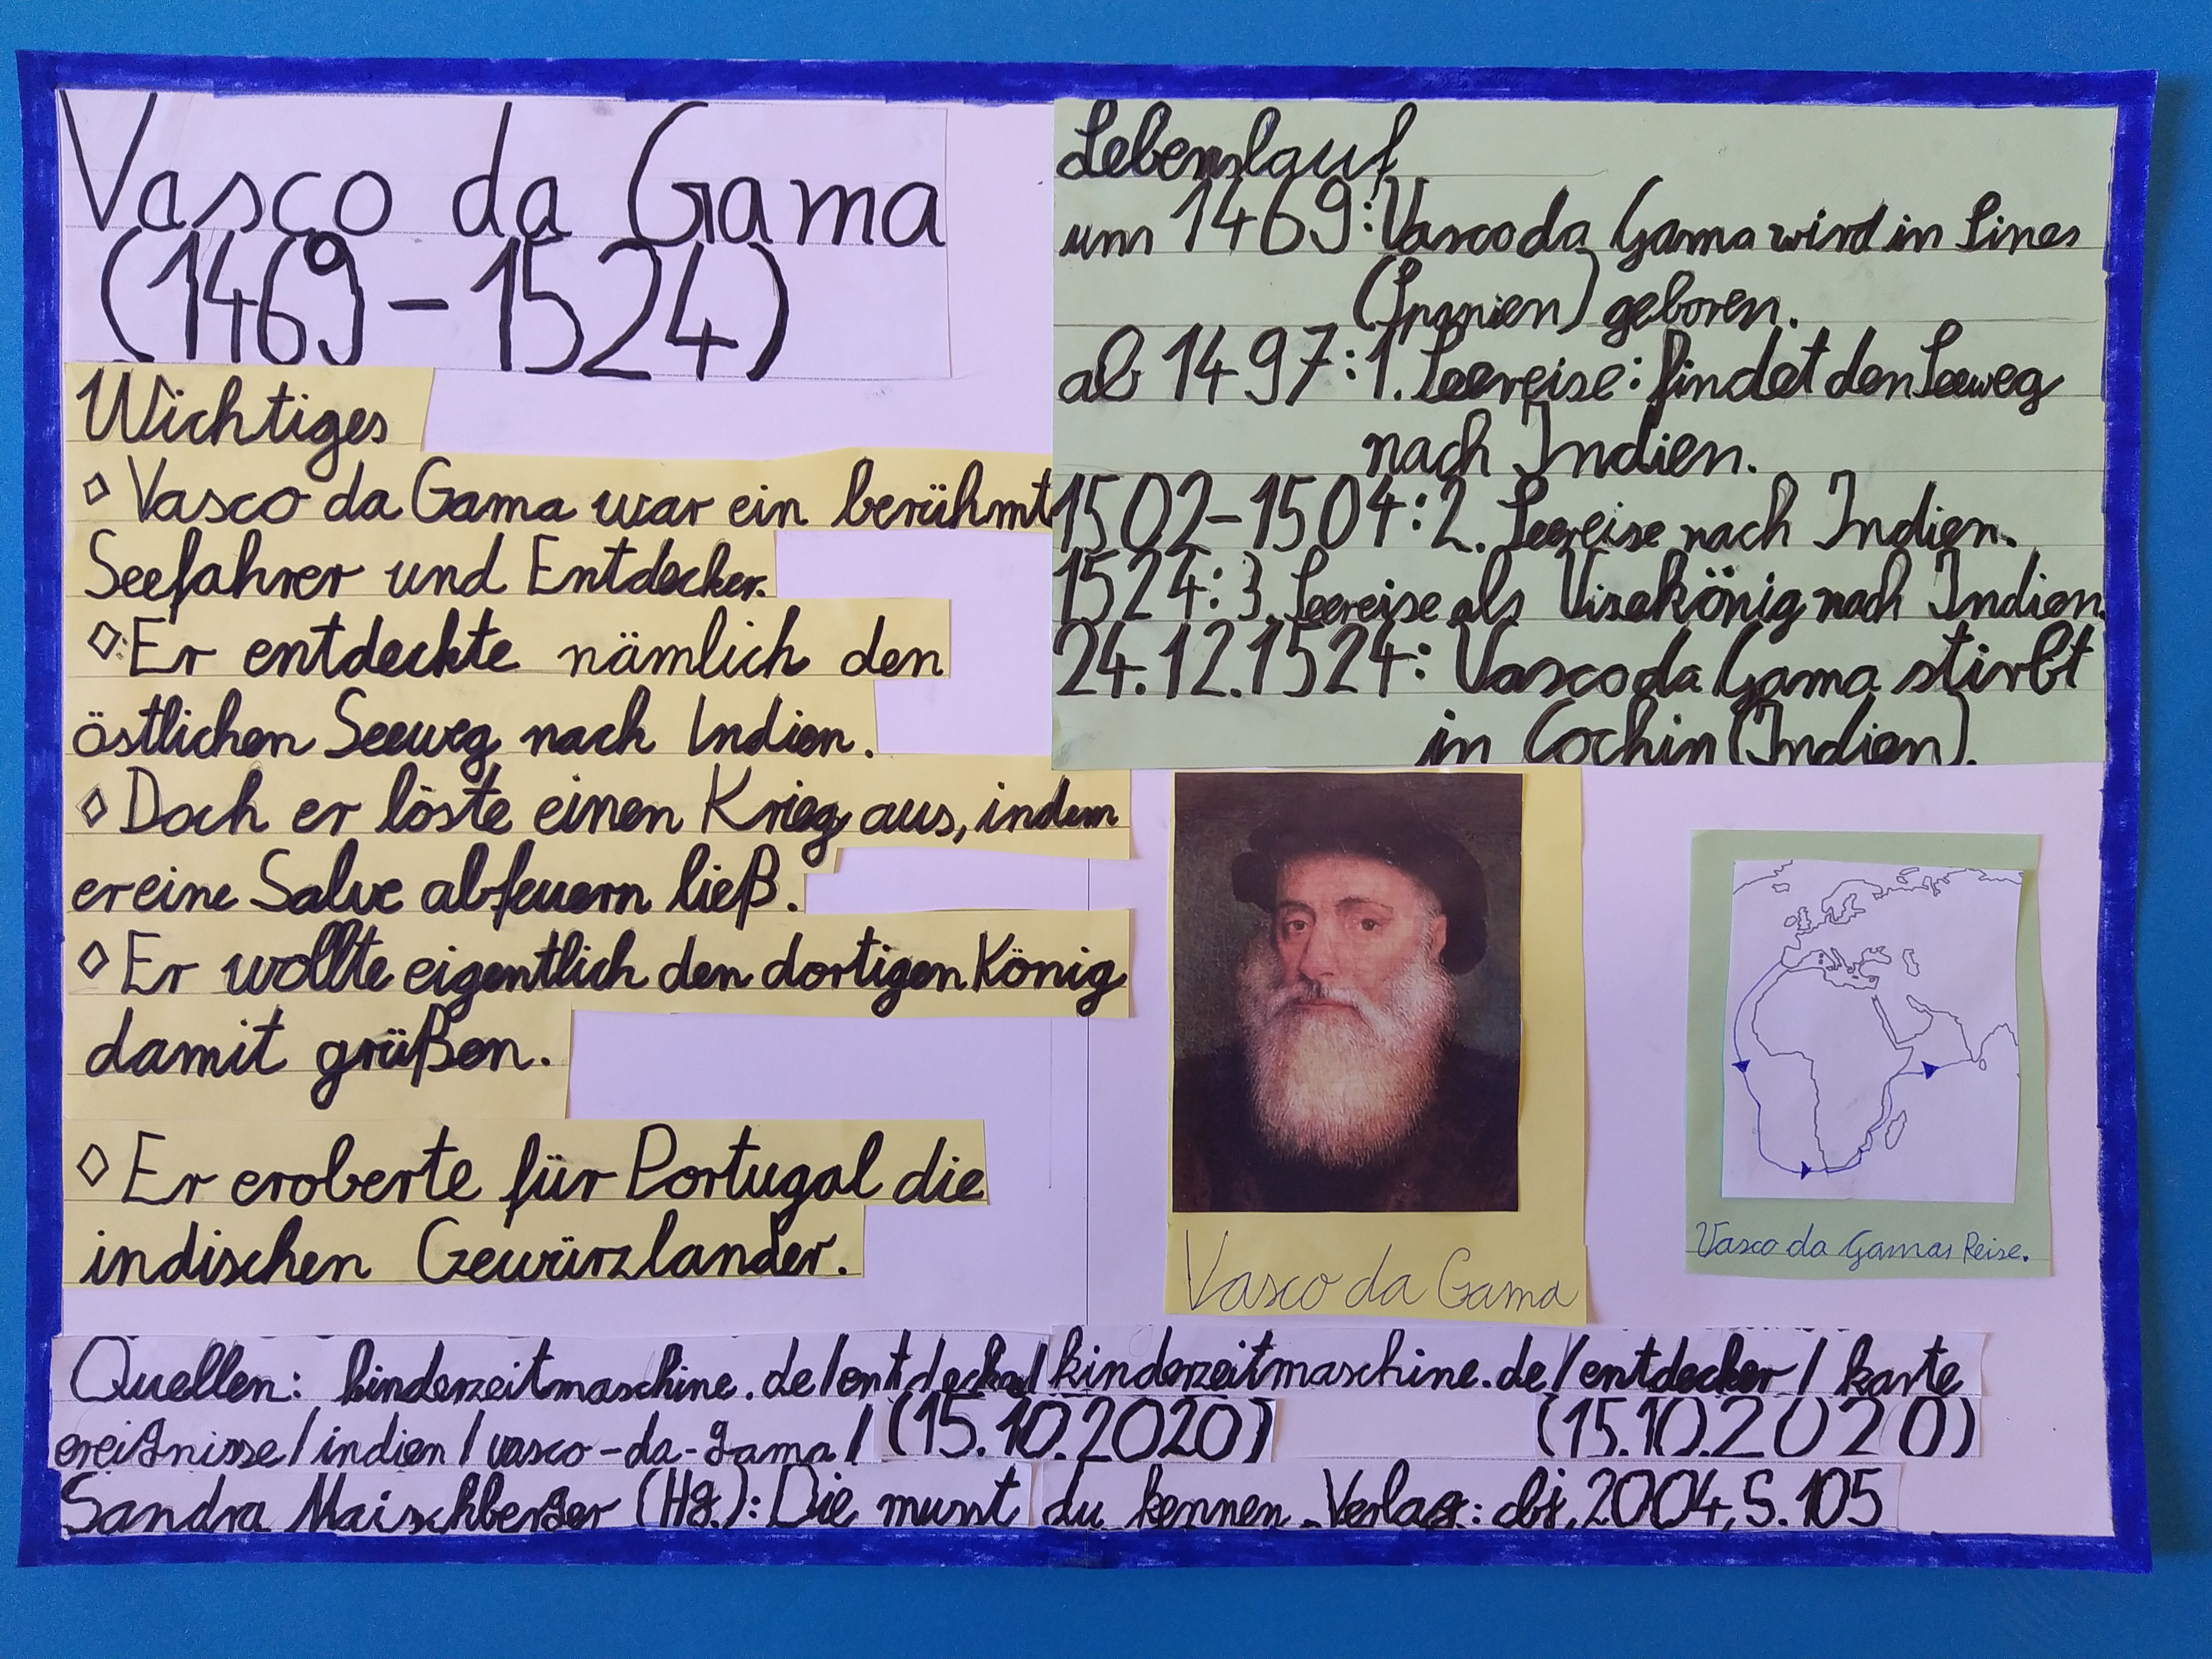 Vasco da Gama
(1469-1524)
Wichtiges
◊ Vasco da Gama war ein berühmt
Seefahrer und Entdecker.
◊ Er entdeckte nämlich den
östlichen Seeweg nach Indien.
◊ Doch er löste einen Krieg aus, indem
er eine Salve abfeuern ließ.
◊ Er wollte eigentlich den dortigen König
damit grüßen.
◊ Er eroberte für Portugal die
indischen Gewürzlander.
Lebenslauf
um 1469: Vasco da Gama wird in Sines
(Spanien) geboren.
ab 1497: 1. Seereise: findet den Seeweg
nach Indien.
1502-1504: 2. Seereise nach Indien.
1524: 3. Seereise als Visekönig nach Indien.
24.12.1524: Vasco da Gama stirbt
in Cochin (Indien).
Vasco da Gama
Vasco da Gamas Reise.
Quellen: kinderzeitmaschine.de/entdecker/ kinderzeitmaschine.de/entdecker/karte
ereignisse/indien/vasco-da-gama/ (15.10.2020) (15.10.2020)
Sandra Maischberger (Hg.): Die musst du kennen. Verlag: cbj, 2004, S. 105